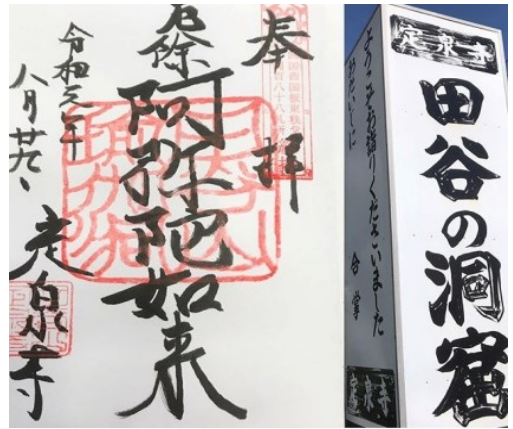 奉拝
厄除
阿弥陀如来
令和元年
八月廿九、
定泉寺
定泉寺
田谷の洞窟
ようこそお詣りくださいました
おだいじに 合掌
定泉寺